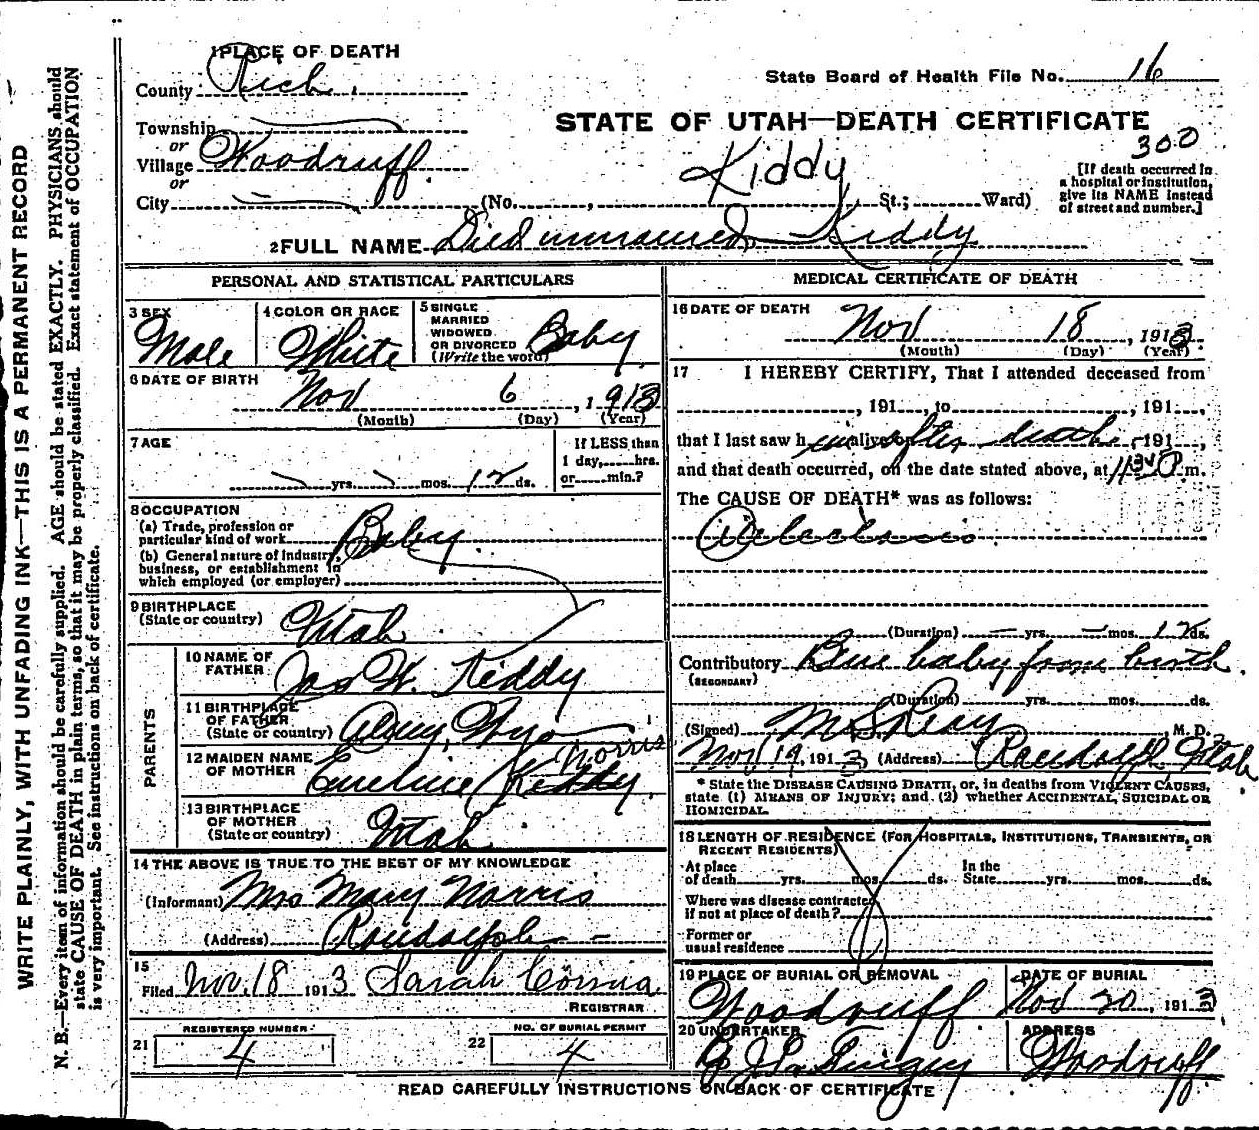 1 PLACE OF DEATH
County Rich.
State Board of Health File No. 16
Township
or
Village Woodruff.
or
City
STATE OF UTAH—DEATH CERTIFICATE
300
Kiddy
(No. , St.; Ward)
[If death occurred in
a hospital or institution,
give its NAME instead
of street and number.]
2 FULL NAME Died unnamed Kiddy
PERSONAL AND STATISTICAL PARTICULARS
3 SEX
Male
4 COLOR OR RACE
White
5 SINGLE
MARRIED
WIDOWED
OR DIVORCED
(Write the word)
Baby
6 DATE OF BIRTH
Nov 6, 1913
(Month) (Day) (Year)
7 AGE
yrs. mos. 12 ds.
If LESS than
1 day, hrs.
or min.?
8 OCCUPATION
(a) Trade, profession or
particular kind of work
Baby.
(b) General nature of industry,
business, or establishment in
which employed (or employer)
9 BIRTHPLACE
(State or country)
Utah
PARENTS
10 NAME OF
FATHER
Jas W. Kiddy
11 BIRTHPLACE
OF FATHER
(State or country)
Wyo
12 MAIDEN NAME
OF MOTHER
Emeline Kiddy.
Norris
13 BIRTHPLACE
OF MOTHER
(State or country)
Utah
14 THE ABOVE IS TRUE TO THE BEST OF MY KNOWLEDGE
(Informant) Mrs Mary Norris
(Address) Randolph
15
Filed Nov. 18 1913 Sarah Cornia
REGISTRAR
21
REGISTERED NUMBER
4
22
NO. OF BURIAL PERMIT
4
MEDICAL CERTIFICATE OF DEATH
16 DATE OF DEATH
Nov 18, 1913
(Month) (Day) (Year)
17 I HEREBY CERTIFY, That I attended deceased from
, 191 , to , 191 ,
that I last saw him alive after death, 191 ,
and that death occurred, on the date stated above, at 1130 P m.
The CAUSE OF DEATH* was as follows:
Atelectasis.
(Duration) yrs. mos. 12 ds.
Contributory Blue baby from birth.
(SECONDARY)
(Duration) yrs. mos. ds.
(Signed) M. D.
Nov 19, 1913 (Address) Randolph Utah
* State the DISEASE CAUSING DEATH, or, in deaths from VIOLENT CAUSES,
state (1) MEANS OF INJURY; and (2) whether ACCIDENTAL, SUICIDAL OR
HOMICIDAL.
18 LENGTH OF RESIDENCE (FOR HOSPITALS, INSTITUTIONS, TRANSIENTS, OR
RECENT RESIDENTS)
At place
of death yrs. mos. ds.
In the
State yrs. mos. ds.
Where was disease contracted
if not at place of death?
Former or
usual residence
19 PLACE OF BURIAL OR REMOVAL
Woodruff
DATE OF BURIAL
Nov 20, 1913
20 UNDERTAKER
Tingey
ADDRESS
Woodruff
READ CAREFULLY INSTRUCTIONS ON BACK OF CERTIFICATE
WRITE PLAINLY, WITH UNFADING INK—THIS IS A PERMANENT RECORD
N. B.—Every item of information should be carefully supplied. AGE should be stated EXACTLY. PHYSICIANS should
state CAUSE OF DEATH in plain terms, so that it may be properly classified. Exact statement of OCCUPATION
is very important. See instructions on back of certificate.